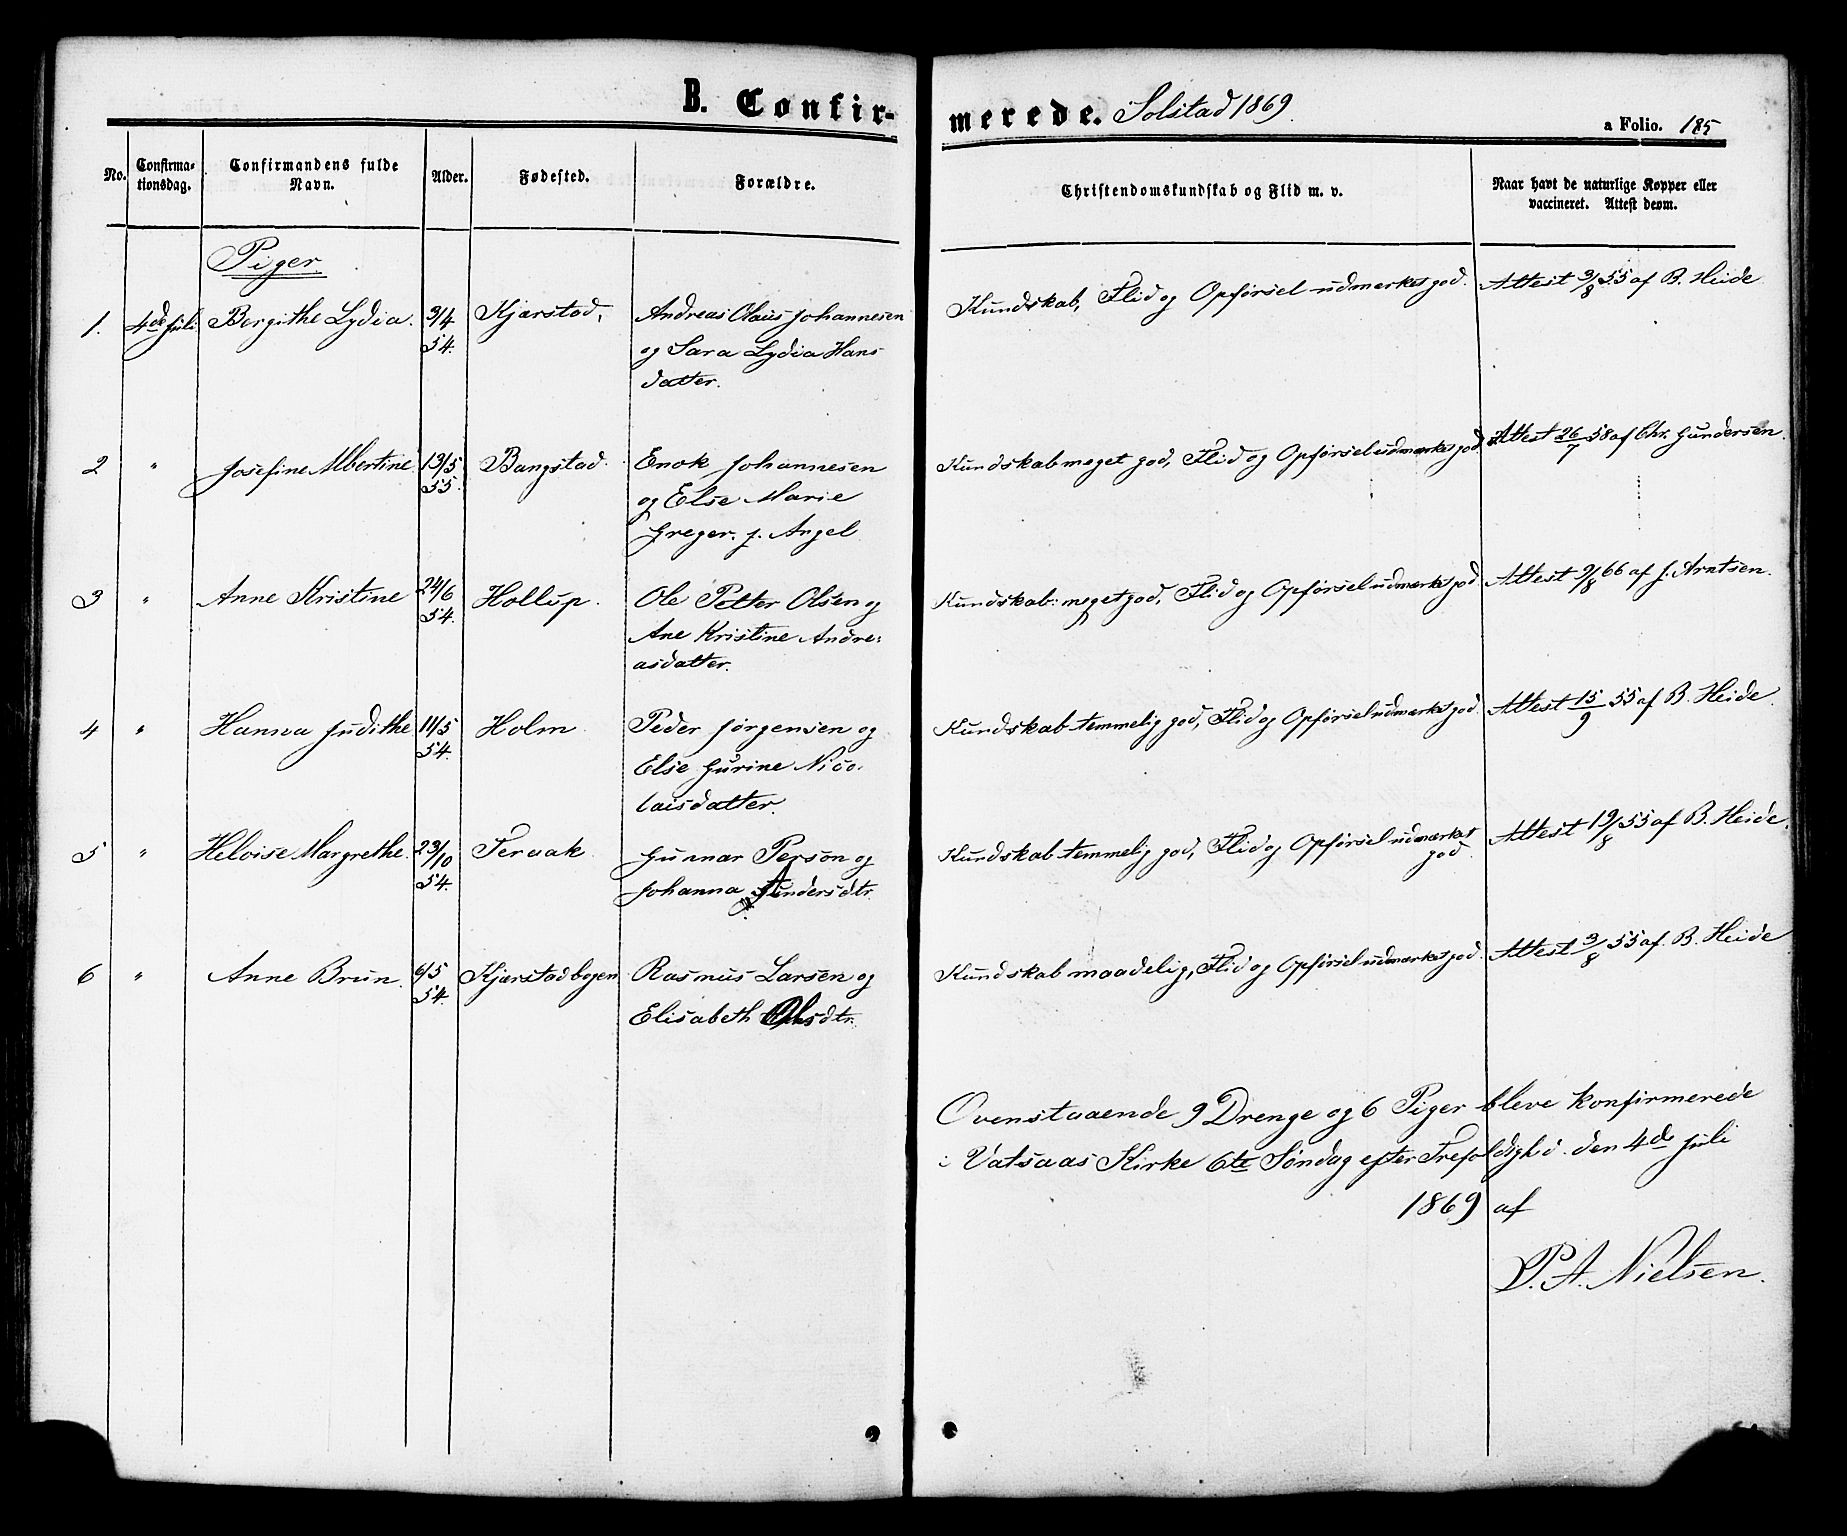 B. Confirmerede. Solstad 1869.
a Folio. 185
No. Confirmationsdag. Confirmandens fulde Navn. Alder. Fødested. Forældre. Christendomskundskab og Flid m. v. Naar havt de naturlige Kopper eller vaccineret. Attest derom.
Piger
1. 4de Juli Bergithe Lydia. 9/4 54. Kjærstad, Andreas Olaus Johannesen Kundskab, Flid og Opførsel udmærket god. Attest 3/8 55 af B. Heide
og Sara Lydia Hans
datter.
2 " Josefine Albertine 13/5 55. Bangstad. Enok Johannesen Kundskab meget god, Flid og Opførsel udmærket god Attest 26/7 58 af Chr. Gundersen.
og Else Marie
Greger. f. Angel
3 " Anne Kristine 24/6 54. Hollup. Ole Petter Olsen og Kundskab: meget god, Flid og Opførsel udmærket god Attest 9/8 66 af J. Arntsen.
Ane Kristine Andre:
asdatter.
4 " Hanna Judithe 11/5 54. Holm Peder Jørgensen og Kundskab temmelig god, Flid og Opførsel udmærket god Attest 15/9 55 af B. Heide.
Else Gurine Nico.
laisdatter.
5 " Heloise Margrethe. 23/10 54. Teraak Gunnar Person og Kundskab temmelig god, Flid og Opførsel udmærket Attest 19/8 55 af B. Heide.
god.
Johanna Andersdtr.
6 " Anne Brun. 6/5 54. Kjærstadbogen Rasmus Larsen og Kundskab maadelig, Flid og Opførsel udmærket god. Attest 3/8 55 af. B. Heide
Elisabeth Olsdtr.
Ovenstaaende 9 Drenge og 6 Piger bleve konfirmerede
i Vatsaas Kirke 6te Søndag efter Trefoldighd. den 4de Juli
1869 af
P. A. Nielsen.